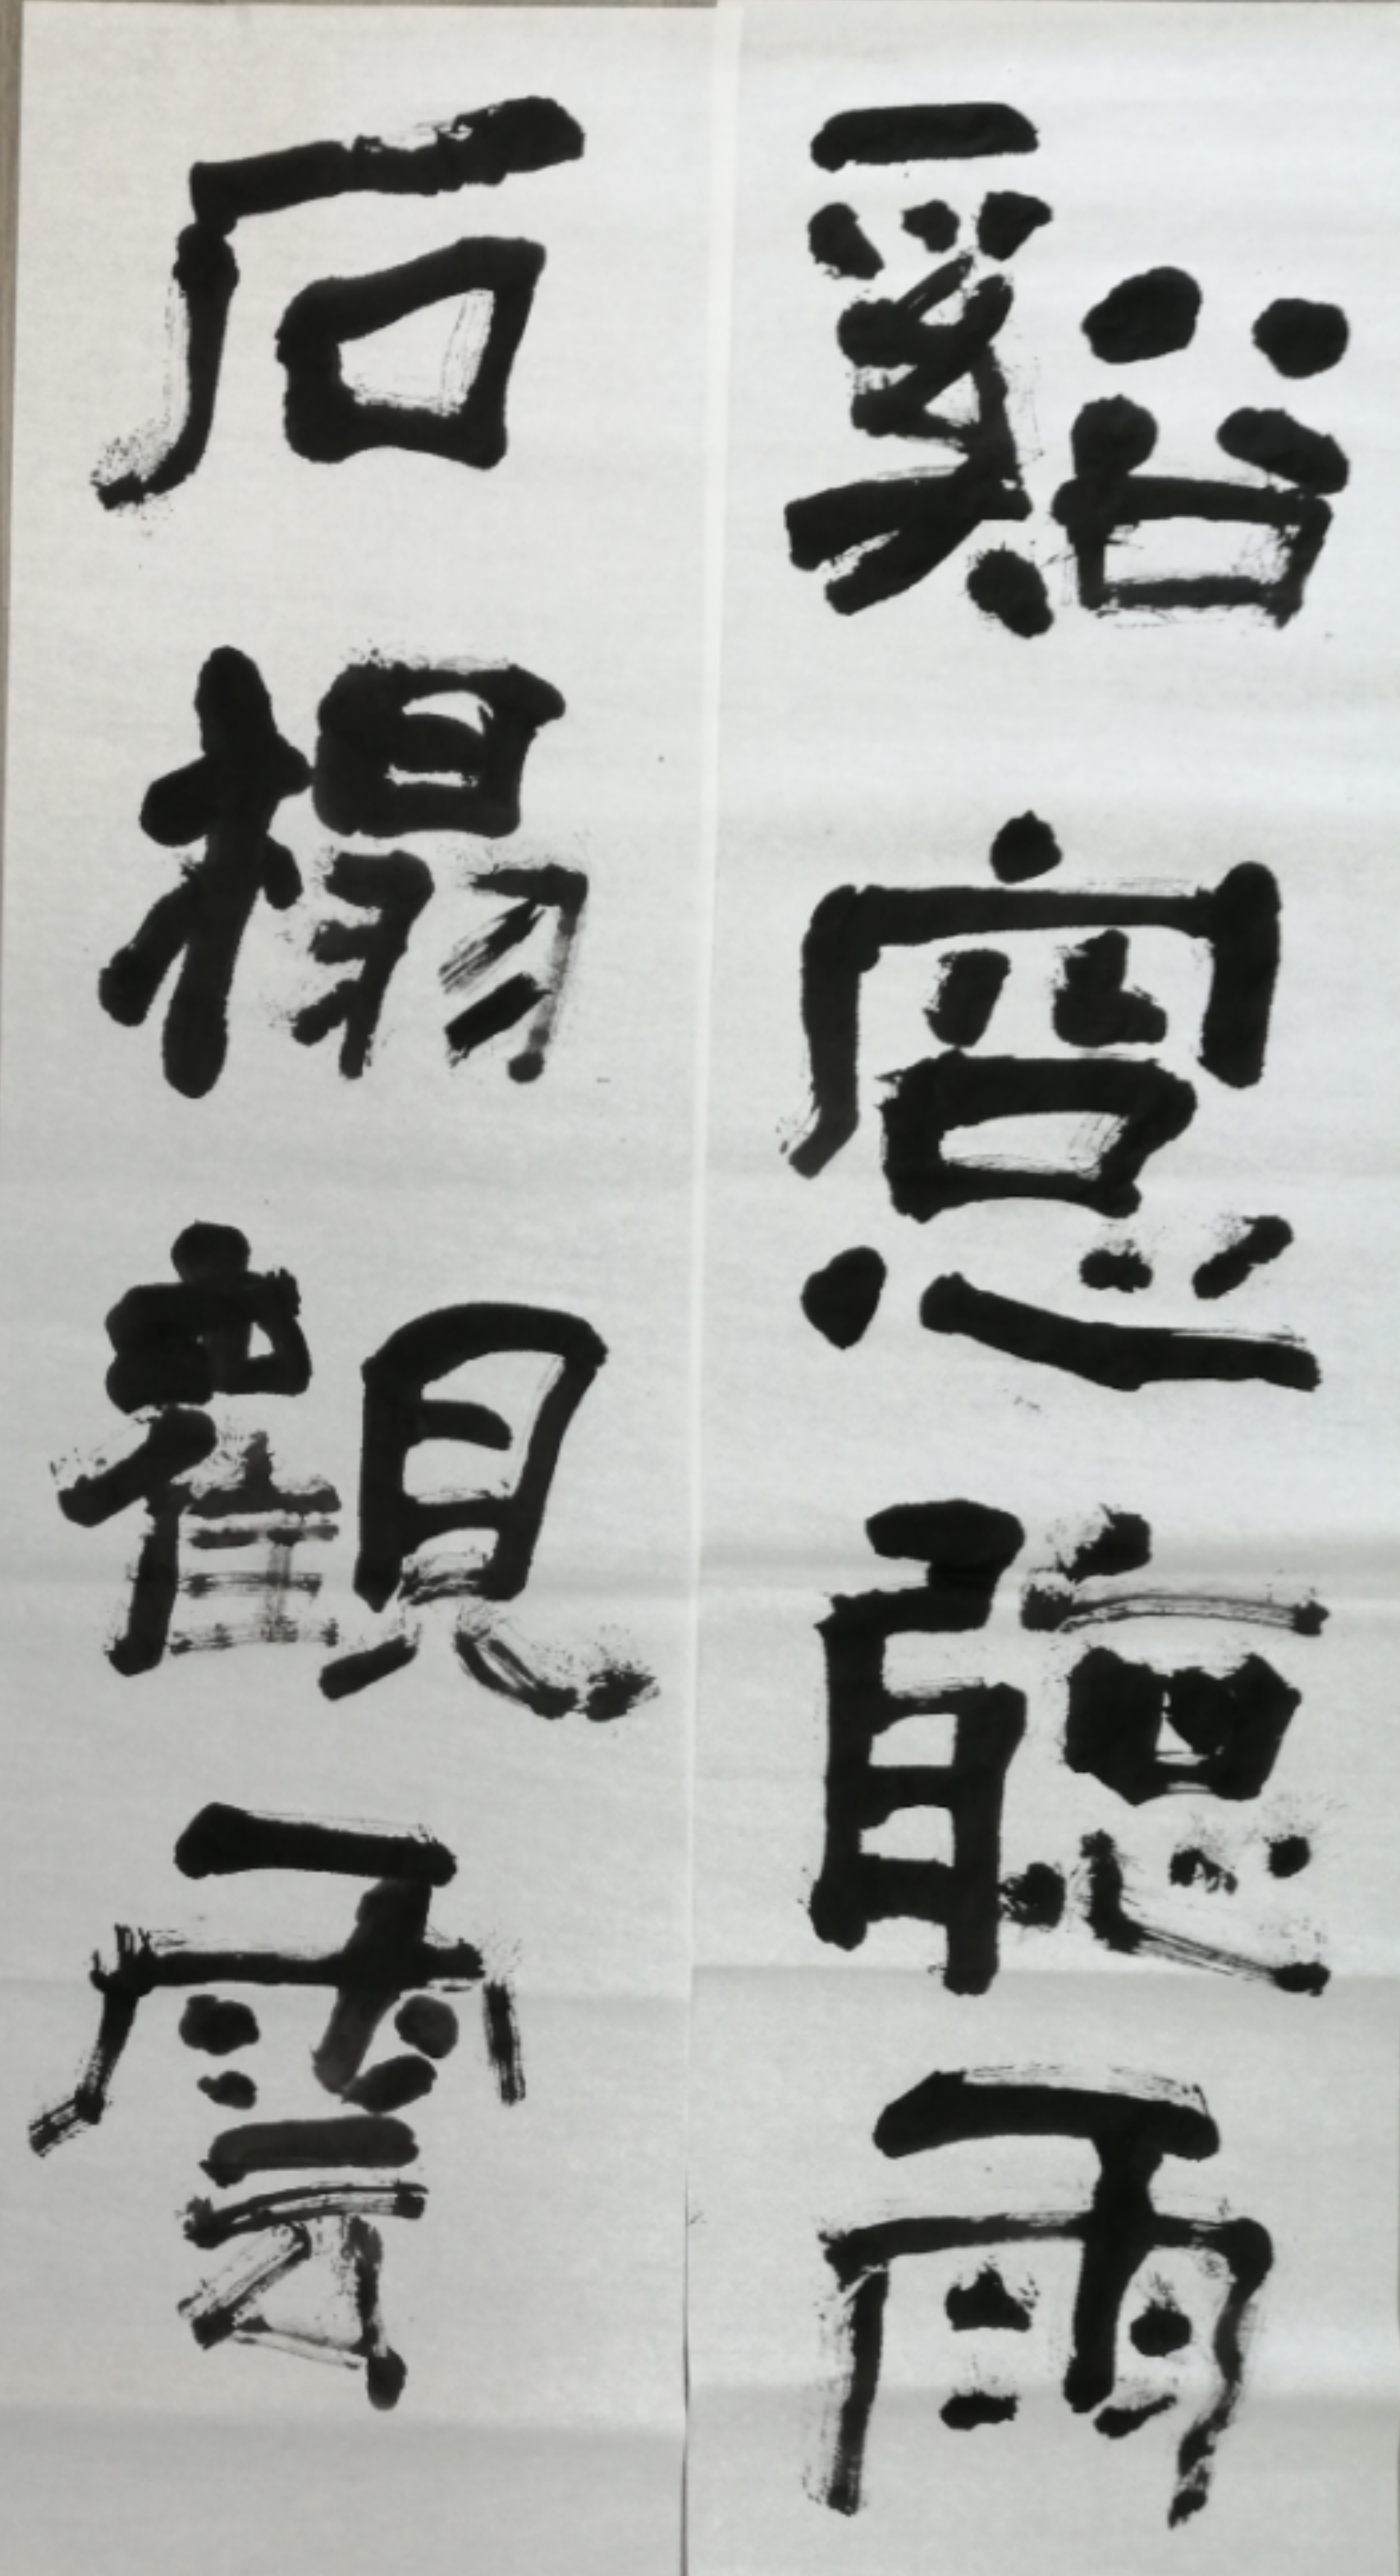 谿窻聽雨
石榻觀雲